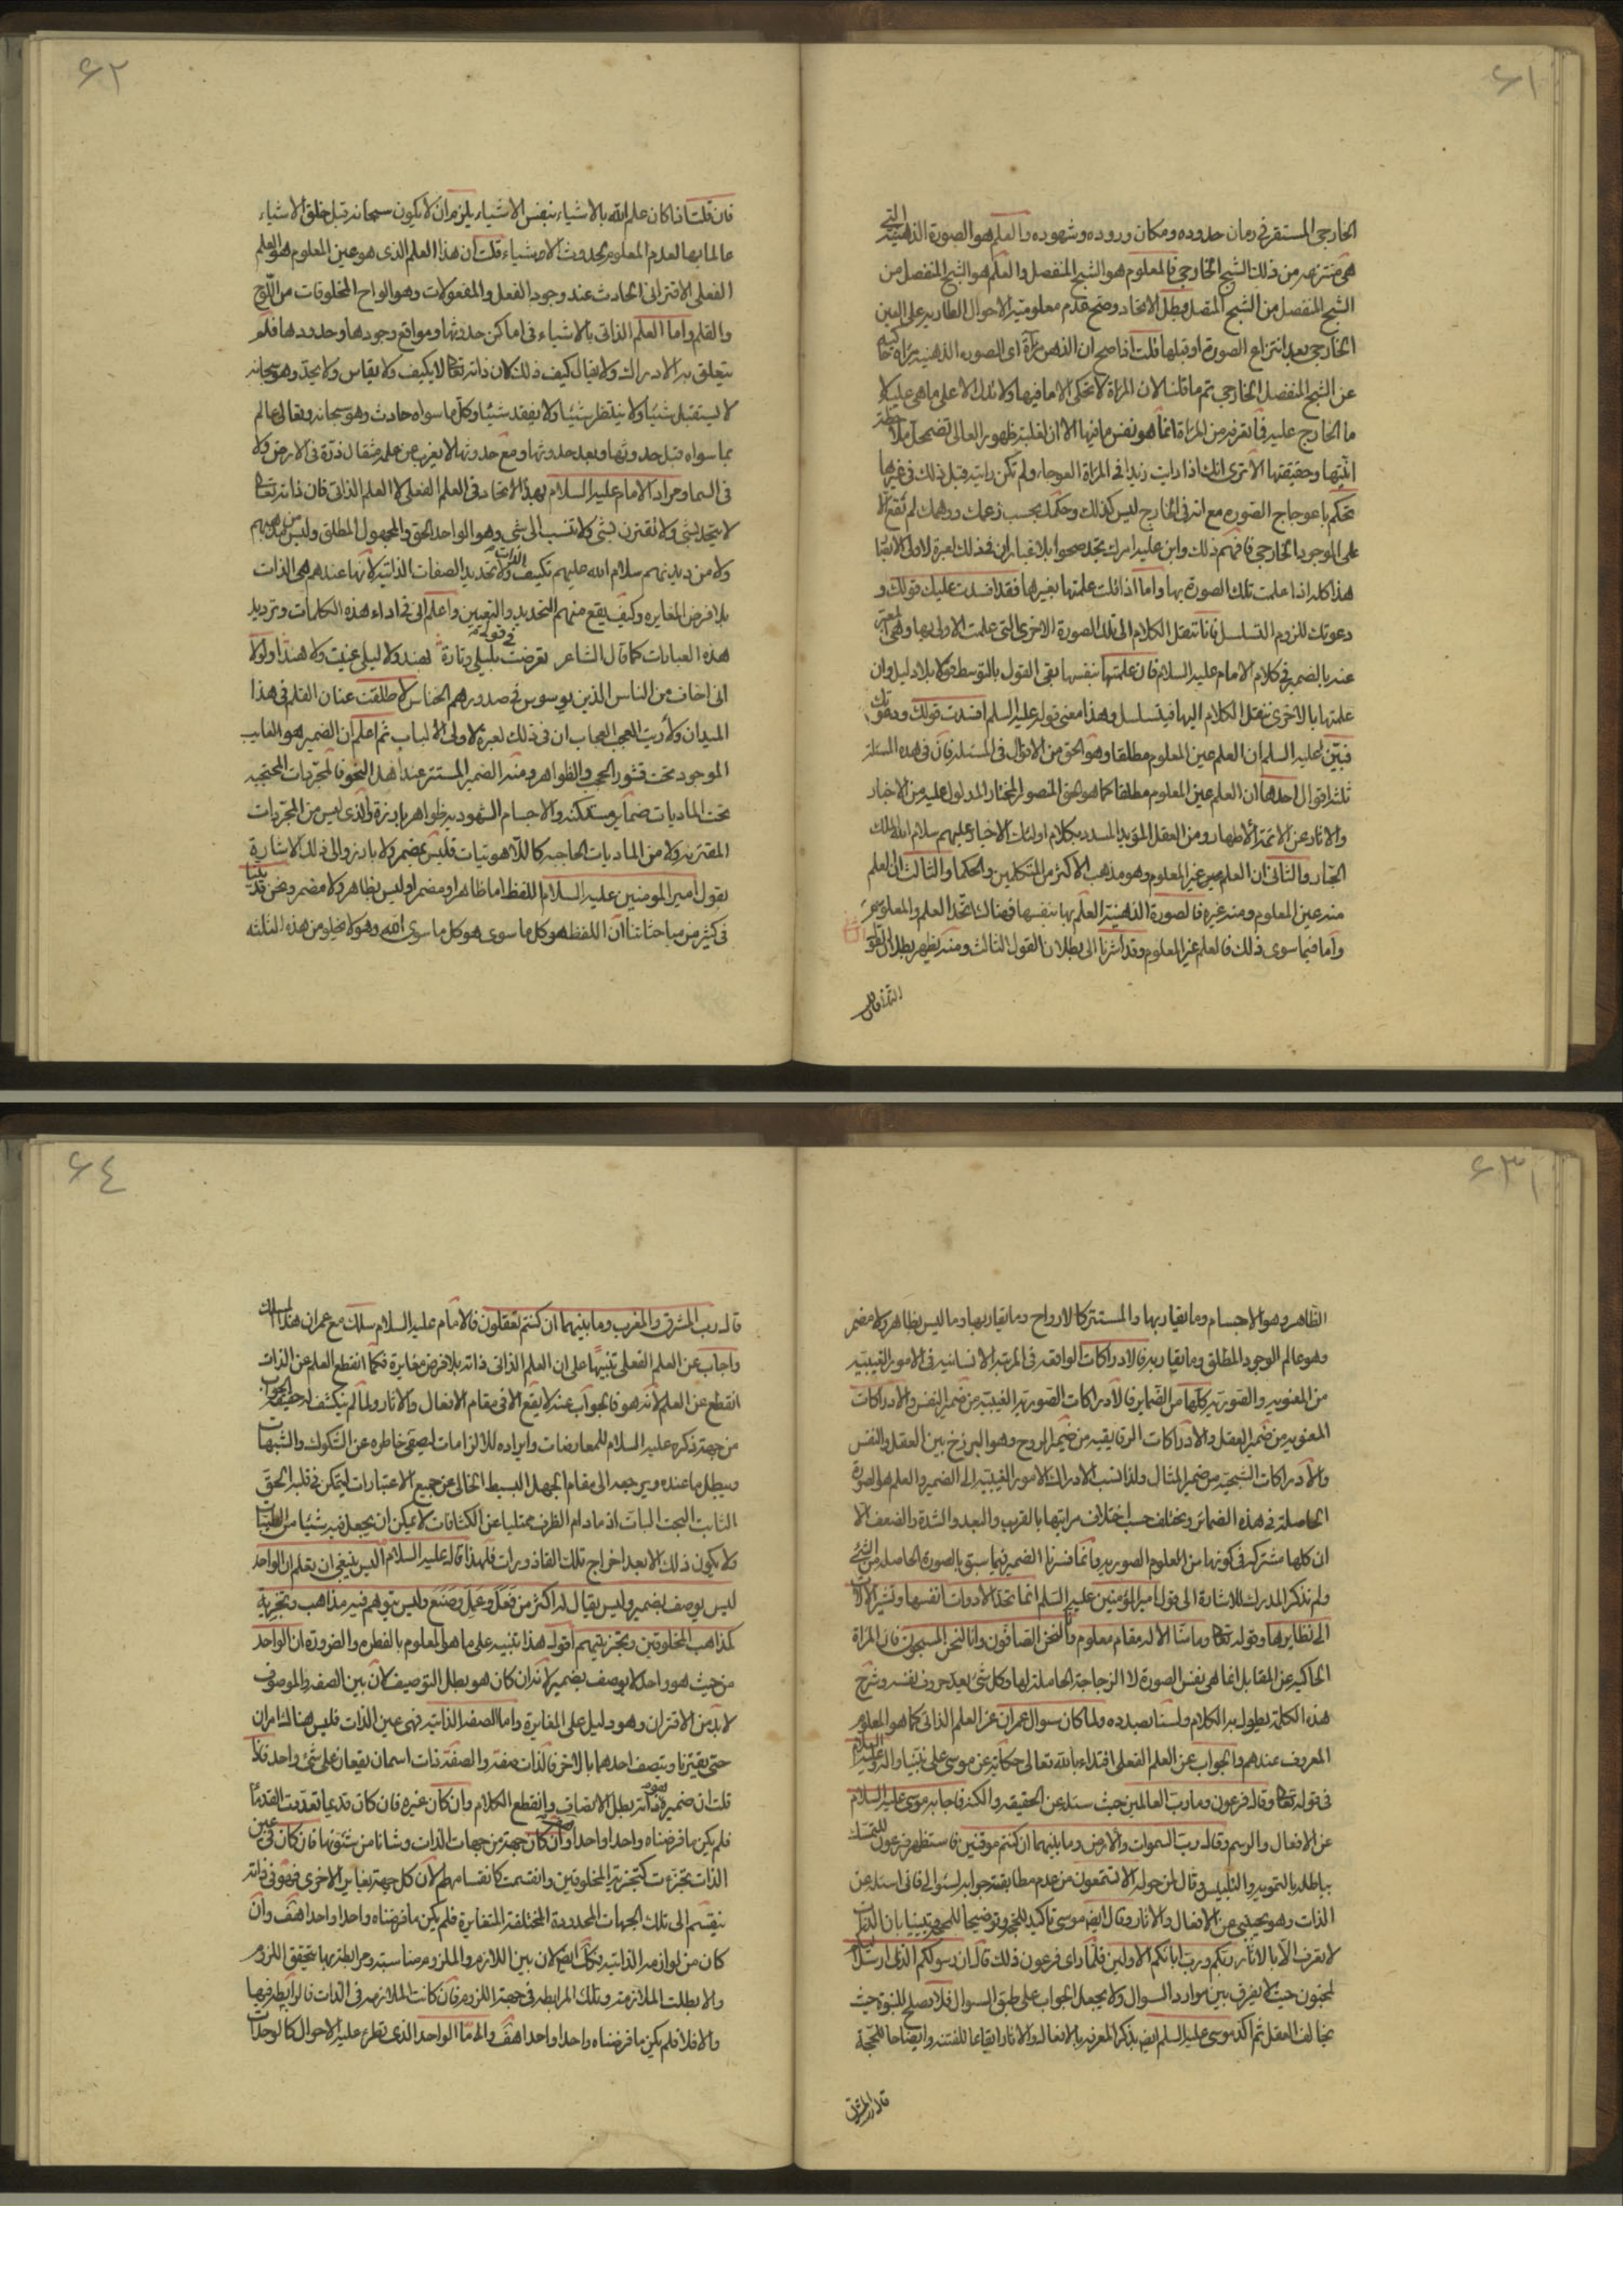 ۶۱
الخارجي المستقر في زمان حدوده ومكان وروده وشهوده والعلم هو الصورة الذهنية التي
هي منتزعة من ذلك الشبح الخارجي فالمعلوم هو الشبح المنفصل والعلم هو الشبح المنفصل من
الشبح المنفصل من الشبح المتصل وبطل الاتحاد وضح عدم معلومية الاحوال الطارية على العين
الخارجي بعد انتزاع الصورة او قبلها قلت اذا صح ان الذهن مرآة اى الصورة الذهنية مرآة حاكية
عن الشبح المنفصل الخارجي تم ما قلنا لان المرآة لا تحكى الا ما فيها ولا تلك الا على ما هي عليه لا
ما الخارج عليه فما تعرفه من المرآة انما هو نفس ما فيها الا ان لغلبة ظهور العالى تضمحل ملاحظة
انيتها وحقيقتها الا ترى انك اذا رايت زيدا في المرآة العوجاء ولم تكن رايته قبل ذلك في غيرها
تحكم باعوجاج الصورة مع انه في الخارج ليس كذلك وحكمك بحسب زعمك ووهمك لم تقع الا
على الموجود الخارجي فافهم ذلك وابن عليه امرك تجد صحوا بلا غبار ان في ذلك لعبرة لاولى الالباب
هذا كله اذا علمت تلك الصورة بها واما اذا قلت علمتها بغيرها فقد افسدت عليك قولك و
دعوتك للزوم التسلسل فانا ننقل الكلام الى تلك الصورة الاخرى التي علمت الاولى بها وهي المعبر
عنه بالضمير في كلام الامام عليه السلام فان علمتها بنفسها بقى القول بالتوسط قولا بلا دليل وان
علمتها بالاخرى ننقل الكلام اليها فيتسلسل وهذا معنى قوله عليه السلم افسدت قولك ودعوتك
فبين عليه السلم ان العلم عين المعلوم مطلقا وهو الحق من الاقوال في المسئلة فان في هذه المسئلة
ثلثة اقوال احدها ان العلم عين المعلوم مطلقا كما هو الحق المنصور المختار المدلول عليه من الاخبار
والاثار عن الائمة الاطهار ومن العقل المؤيد المسدد بكلام اولئك الاخيار عليهم سلام الله الملك
الجبار والثانى ان العلم غير المعلوم وهو مذهب الاكثر من المتكلمين والحكماء والثالث الى العلم
منه عين المعلوم ومنه غيره فالصورة الذهنية العلم بها بنفسها فهناك اتحد العلم والمعلوم
واما فيما سوى ذلك فالعلم غير المعلوم وقد اشرنا الى بطلان القول الثالث ومنه يظهر بطلان القول
۶۲
فان قلت اذا كان علم الله بالاشياء نفس الاشياء يلزم ان لا يكون سبحانه قبل خلق الاشياء
عالما بها لعدم المعلوم بحدوث الاشياء قلت ان هذا العلم الذى هو عين المعلوم هو العلم
الفعلى الاقترانى الحادث عند وجود الفعل والمفعولات وهو الواح المخلوقات من اللوح
والقلم واما العلم الذاتى بالاشياء في اماكن حدوثها ومواقع وجودها وحدودها فلم
يتعلق به الادراك ولا يقال كيف ذلك لان ذاته تعالى لا يكيف ولا يقاس ولا يحد وهو سبحانه
لا يستقبل شيئا ولا ينتظر شيئا ولا يفقد شيئا وكل ما سواه حادث وهو سبحانه وتعالى عالم
بما سواه قبل حدوثها وبعد حدوثها ومع حدوثها لا يعزب عن علمه مثقال ذرة في الارض ولا
في السماء ومراد الامام عليه السلام بهذا الاتحاد في العلم الفعلى لا العلم الذاتى فان ذاته تعالى
لا يتحد بشئ ولا تقترن بشئ ولا تنسب الى شئ وهو الواحد الحق والمجهول المطلق وليس من مذهبهم
ولا من ديدنهم سلام الله عليهم تكييف الذات ولا تحديد الصفات الذاتية لانها عندهم هي الذات
بلا فرض المغايرة وكيف يقع منهم التحديد والتعيين واعلم انى في اداء هذه الكلمات وترديد
هذه العبارات كما قال الشاعر في قوله تعرضت بليلى وتارة بهند ولا ليلى عنيت ولا هندا ولولا
انى اخاف من الناس الذين يوسوس في صدورهم الخناس لاطلقت عنان القلم في هذا
الميدان ولاريت العجب العجاب ان في ذلك لعبرة لاولى الالباب ثم اعلم ان الضمير هو الغايب
الموجود تحت قشور الحجب والظواهر ومنه الضمير المستتر عند اهل النحو فالمجردات المحتجبة
تحت الماديات ضماير مستكنة والاجسام الشهودية ظواهر بارزة والذى ليس من المجردات
المقترنة ولا من الماديات الحاجبة كاللاهوتيات فليس بمضمر ولا بارز والى ذلك الاشارة
بقول امير المومنين عليه السلام اللفظ اما ظاهر او مضمر او ليس بظاهر ولا مضمر ونحن قد بينا
في كثير من مباحثاتنا ان اللفظ هو كل ما سوى هو كل ما سوى الله وهو لا يخلو من هذه الثلثة
۶۳
الظاهر وهو الاجسام وما يقاربها والمستتر كالارواح وما يقاربها وما ليس بظاهر ولا مضمر
وهو عالم الوجود المطلق وما يقاربه فالادراكات الواقعة في المرتبة الانسانية في الامور الغيبية
من المعنوية والصورية كلها من الضماير فالادراكات الصورية الغيبية من ضمير النفس والادراكات
المعنوية من ضمير العقل والادراكات الرقايقية من ضمير الروح وهو البرزخ بين العقل والنفس
والادراكات الشبحية من ضمير المثال ولذا نسب الادراك الامور الغيبية الى الضمير والعلم هو الصورة
الحاصلة في هذه الضمائر ويختلف حسب اختلاف مراتبها بالقرب والبعد والشدة والضعف الا
ان كلها مشتركة في كونها من العلوم الصورية وانما فسرنا الضمير فيما سبق بالصورة الحاصلة من الشئ
ولم نذكر المدرك للاشارة الى قول امير المؤمنين عليه السلم انما تحد الادوات انفسها وتشير الالات
الى نظايرها وقوله تعالى وما منا الا له مقام معلوم وانا لنحن الصافون وانا لنحن المسبحون فان المرآة
الحاكية عن المقابل انما هي نفس الصورة لا الزجاجة الحاملة لها وكل شئ يعد حروف نفسه وشرح
هذه الكلمة يطول به الكلام ولسنا بصدده ولما كان سوال عمران عن العلم الذاتى كما هو المعلوم
المعروف عندهم والجواب عن العلم الفعلى اقتداء بالله تعالى حكاية عن موسى على نبينا واله وعليه السلام
في قوله تعالى وقال فرعون وما رب العالمين حيث سئله عن الحقيقة والكنه فاجابه موسى عليه السلام
عن الافعال والرسم وقال رب السموات والارض وما بينهما ان كنتم موقنين فاستظهر فرعون للتمسك
بباطله بالتمويه والتلبيس وقال لمن حوله الا تستمعون من عدم مطابقة جوابه لسئوالى فانى اسئله عن
الذات وهو يجيبنى عن الافعال والاثار وقال ايضا موسى تاكيدا للحجة وتوضيحا للمحجة وتبيينا بان الذات
لا يعرف الا بالاثار ربكم ورب ابائكم الاولين فلما راى فرعون ذلك قال ان رسولكم الذى ارسل اليكم
لمجنون حيث لا يفرق بين موارد السوال ولا يجعل الجواب على طبق السوال فلا يصلح للنبوة حيث
يخالف العقل ثم اكد موسى عليه السلم ايضا بذكر المعرفة بالافعال والاثار ايقاعا للفتنة وايضاحا للحجة
قال رب المشرق
۶٤
قال رب المشرق والمغرب وما بينهما ان كنتم تعقلون فالامام عليه السلام سلك مع عمران هذا المسلك
واجاب عن العلم الفعلى تنبيها على ان العلم الذاتى ذاته بلا فرض مغايرة فكما انقطع العلم عن الذات
انقطع عن العلم لانه هو فالجواب عنه لا يقع الا في مقام الافعال والاثار ولما لم ينكشف له حقيقة الجواب
من جهة ذكره عليه السلام للمعارضات وايراده للالزامات ليصفى خاطره عن الشكوك والشبهات
ويبطل ما عنده ويرجعه الى مقام الجهل البسيط الخالى عن جميع الاعتبارات ليتمكن في قلبه الحق
الثابت البحت البات اذ ما دام الظرف ممتليا عن الكثافات لا يمكن ان يجعل فيه شيئا من الطيبات
ولا يكون ذلك الا بعد اخراج تلك القاذورات فلهذا قال عليه السلام اليس ينبغى ان يعلم ان الواحد
ليس يوصف بضمير وليس يقال له اكثر من فعل وعمل وصنع وليس يتوهم فيه مذاهب وتجزية
كمذاهب المخلوقين وتجزيتهم اقول هذا تنبيه على ما هو المعلوم بالفطرة والضرورة ان الواحد
من حيث هو واحد لا يوصف بضمير لانه ان كان هو بطل التوصيف لان بين الصفة والموصوف
لابد من الاقتران وهو دليل على المغايرة واما الصفة الذاتية فهى عين الذات فليس هناك امران
حتى يقترنا ويتصف احدهما بالاخر فالذات صفة والصفة ذات اسمان يقعان على شئ واحد فلو
قلت ان ضميره هو ذاته بطل الاتصاف وانقطع الكلام وان كان غيره فان كان قديما تعددت القدماء
فلم يكن ما فرضناه واحدا واحدا وان كان جهة من جهات الذات وشانا من شئونها فان كان في عين
الذات تجزءت كتجزية المخلوقين وانقسمت كانقسامهم لان كل جهة يغاير الاخرى فهو في ذاته
ينقسم الى تلك الجهات المحدودة المختلفة المتغايرة فلم يكن ما فرضناه واحدا واحدا هف وان
كان من لوازمه الذاتية فكك ايضا لان بين اللازم والملزوم مناسبة ومرابطة بها يتحقق اللزوم
والا بطلت الملازمة وتلك المرابطة في جهة اللزوم فان كانت الملازمة في الذات فالرابطة فيها
والا فلا فلم يكن ما فرضناه واحدا واحدا هف واما الواحد الذى تطرء عليه الاحوال كالوحدات